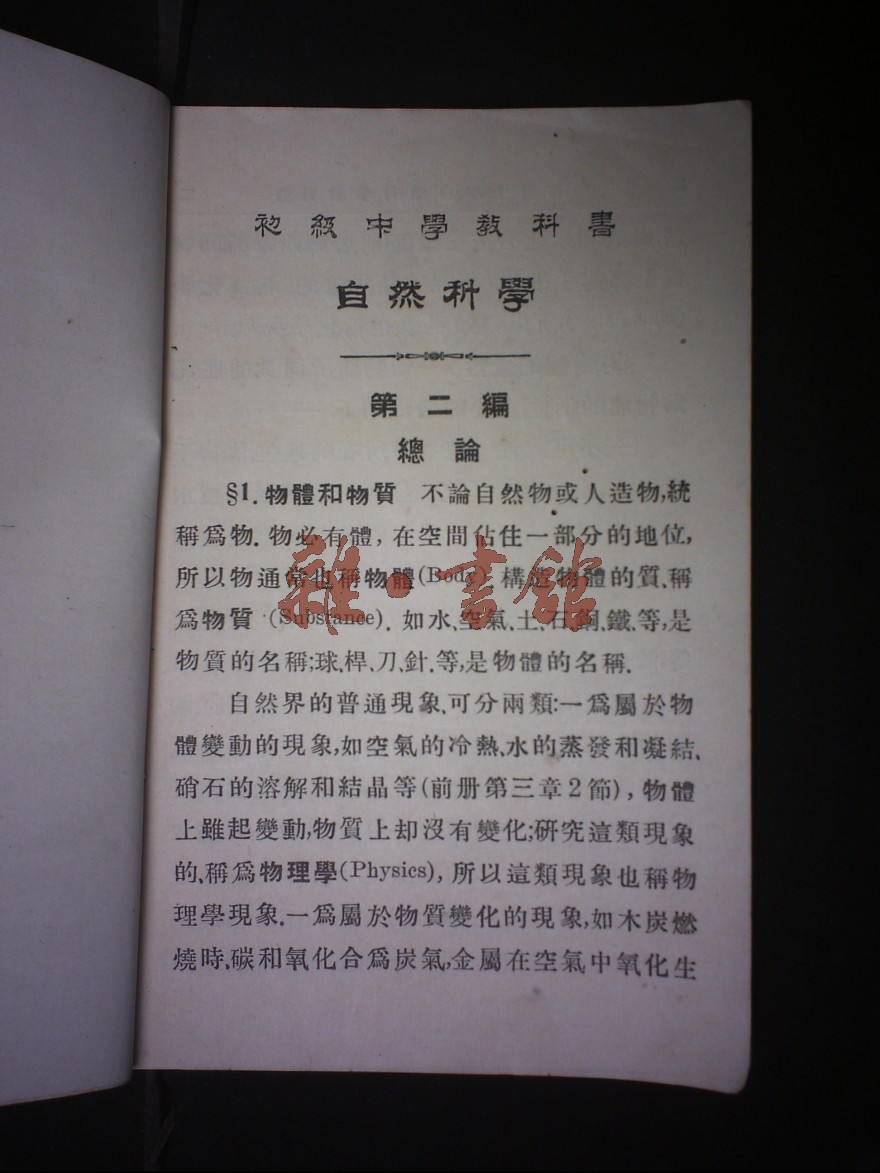 初級中學教科書
自然科學
第二編
總論
§1. 物體和物質　不論自然物或人造物,統
稱爲物. 物必有體, 在空間佔住一部分的地位,
所以物通常也稱物體(Body). 構造物體的質、稱
爲物質 (Substance). 如水、空氣、土、石、銅、鐵、等,是
物質的名稱;球、桿、刀、針、等,是物體的名稱.
自然界的普通現象、可分兩類:一爲屬於物
體變動的現象,如空氣的冷熱、水的蒸發和凝結、
硝石的溶解和結晶等(前册第三章2節), 物體
上雖起變動,物質上却沒有變化;硏究這類現象
的、稱爲物理學(Physics), 所以這類現象也稱物
理學現象.一爲屬於物質變化的現象,如木炭燃
燒時、碳和氧化合爲炭氣,金屬在空氣中氧化生
雜·書館